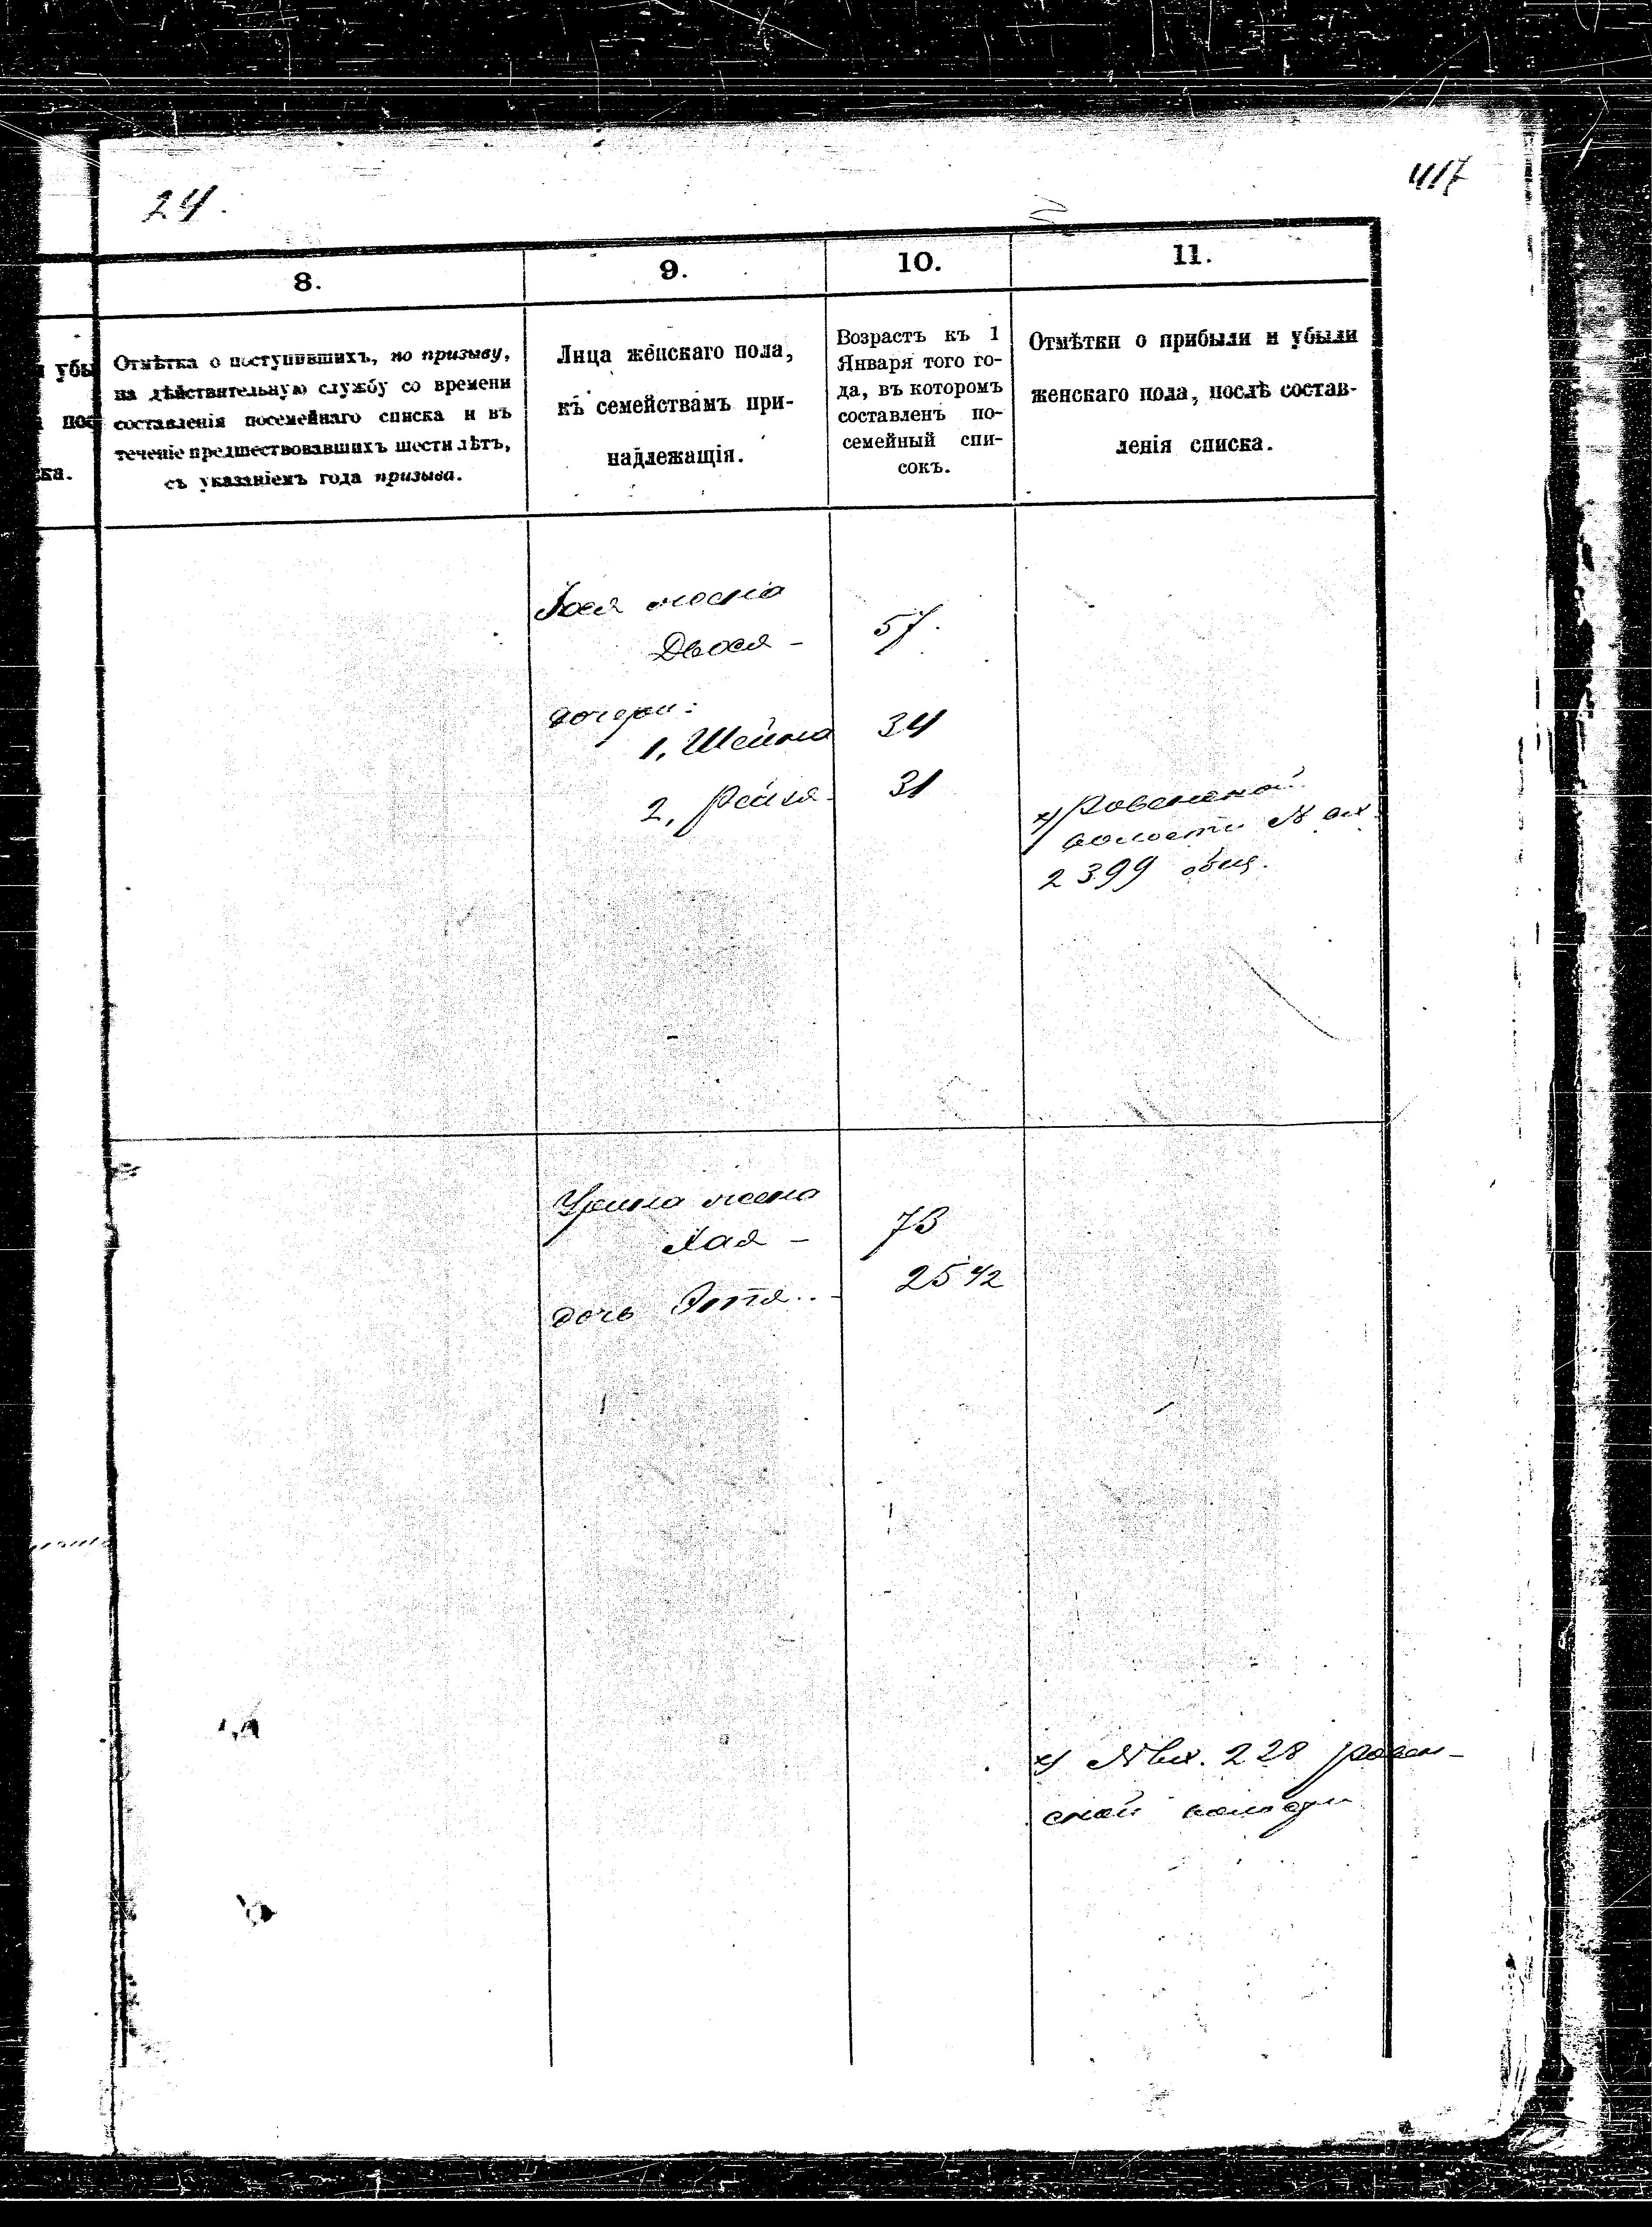 24.
417
8.
9.
10.
11.
убы
пос
ка.
Отмѣтка о поступившихъ, по призыву,
на дѣйствительную службу со времени
составленія посемейнаго списка и въ
теченіе предшествовавшихъ шести лѣтъ,
съ указаніемъ года призыва.
Лица женскаго пола,
къ семействамъ при-
надлежащія.
Возрастъ къ 1
Января того го-
да, въ которомъ
составленъ по-
семейный спи-
сокъ.
Отмѣтки о прибыли и убыли
женскаго пола, послѣ состав-
ленія списка.
жена
Двося - 57.
дочери:
1, Шейна 34
2, Рейзя - 31
х) Ровенской
волости № вх.
2399 общ.
жена
Хая - 73
дочь Этта - 25 1/2
х) № вх. 228 ровен-
ской волости